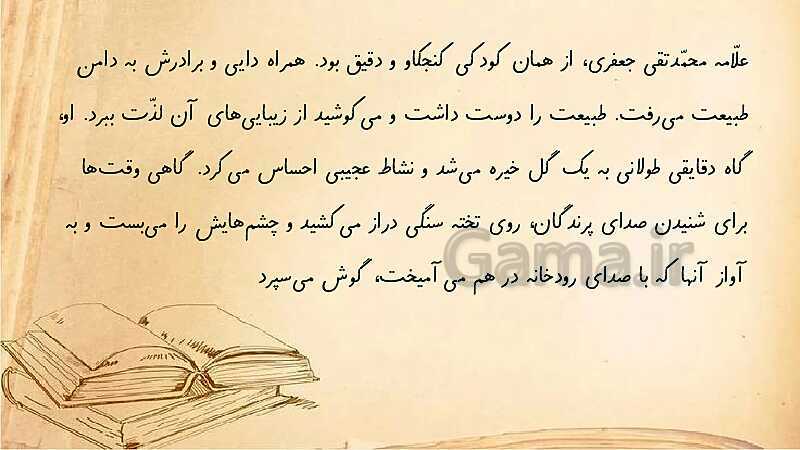 علّامه محمّدتقی جعفری، از همان کودکی کنجکاو و دقیق بود. همراه دایی و برادرش به دامن
طبیعت می‌رفت. طبیعت را دوست داشت و می‌کوشید از زیبایی‌های آن لذّت ببرد. او،
گاه دقایقی طولانی به یک گل خیره می‌شد و نشاط عجیبی احساس می‌کرد. گاهی وقت‌ها
برای شنیدن صدای پرندگان، روی تخته سنگی دراز می‌کشید و چشم‌هایش را می‌بست و به
آواز آنها که با صدای رودخانه در هم می‌آمیخت، گوش می‌سپرد
Gama.ir